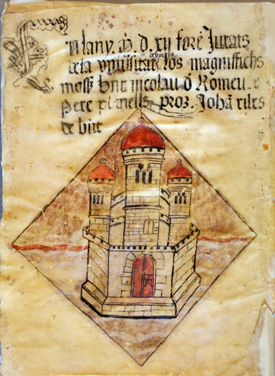 En lany M. d. xv forē Jurats
dela vniusitat los magnifichs
moss bnt nicolau d Romeu e
Pere planells proz. Johā
de bnt